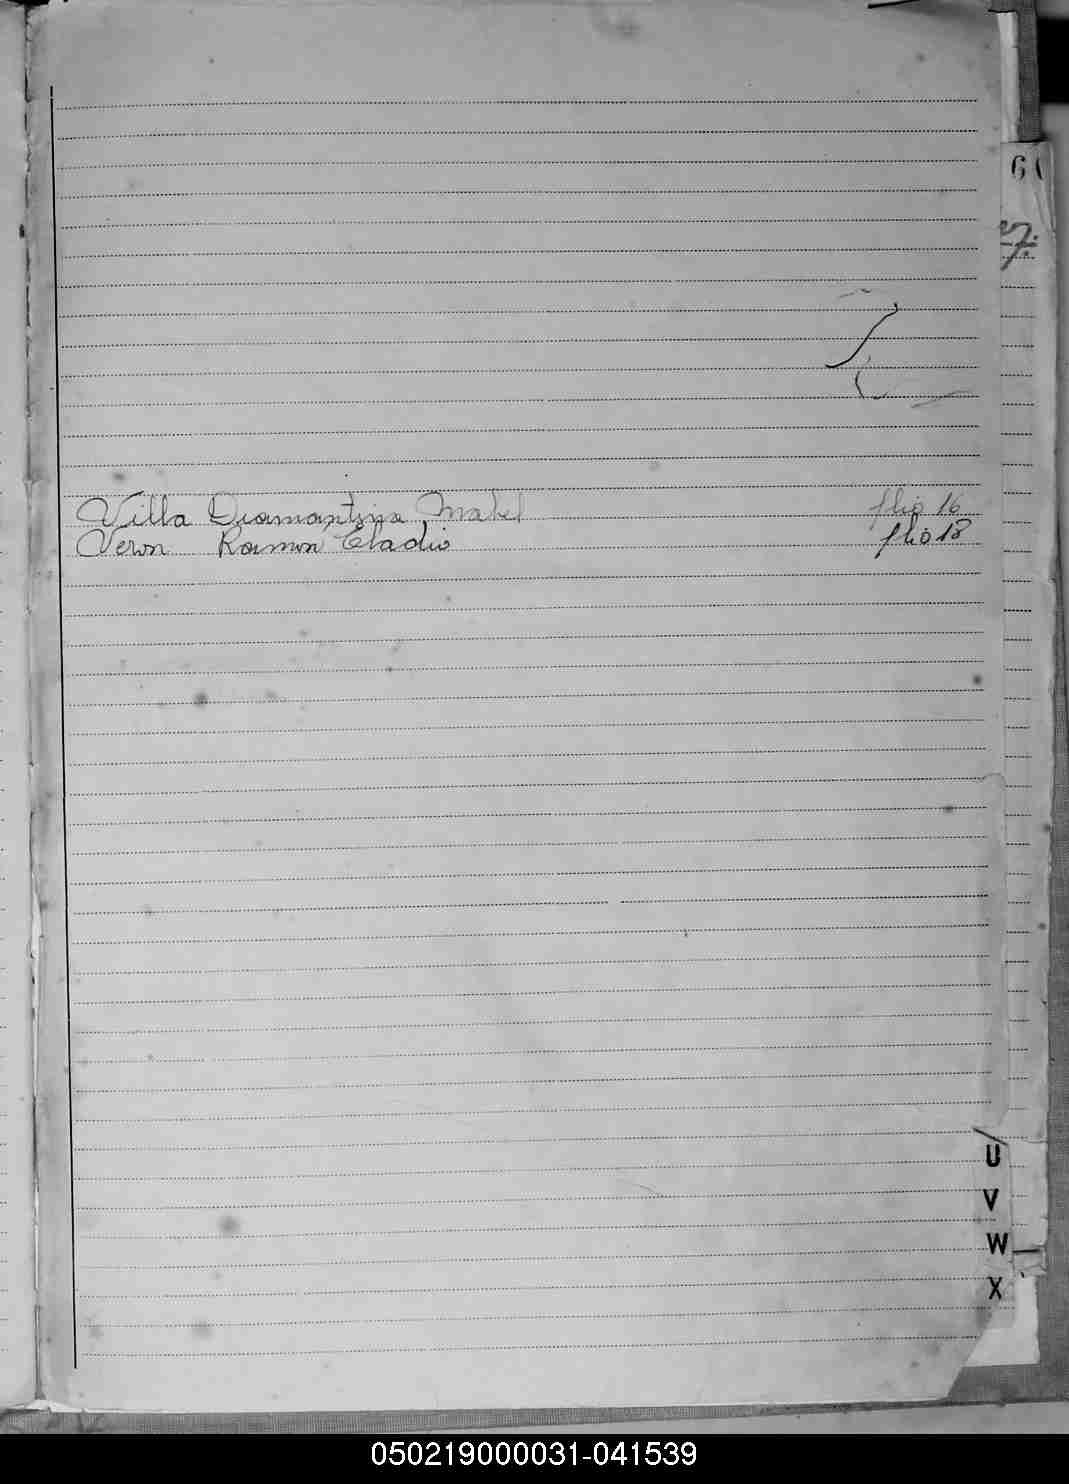 6
Villa Diamantina Mabel flio 16
Veron Ramon Eladio flio 18
U
V
W
X
050219000031-041539